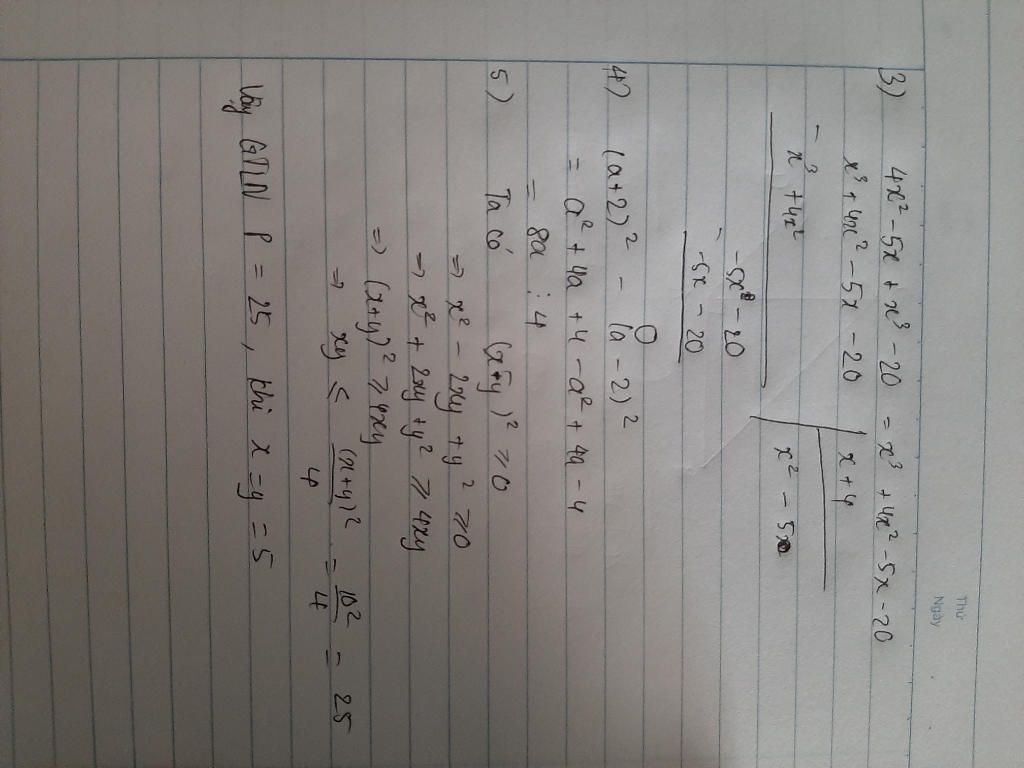 Thứ
Ngày
3) 4x² - 5x + x³ - 20 = x³ + 4x² - 5x - 20
x³ + 4x² - 5x - 20 | x + 4
- x³ + 4x² | x² - 5
-5x - 20
- -5x - 20
0
4) (a+2)² - (a-2)²
= a² + 4a + 4 - a² + 4a - 4
= 8a ⋮ 4
5) Ta có (x-y)² ≥ 0
=> x² - 2xy + y² ≥ 0
=> x² + 2xy + y² ≥ 4xy
=> (x+y)² ≥ 4xy
=> xy ≤ (x+y)²/4 = 10²/4 = 25
Vậy GTLN P = 25, khi x = y = 5